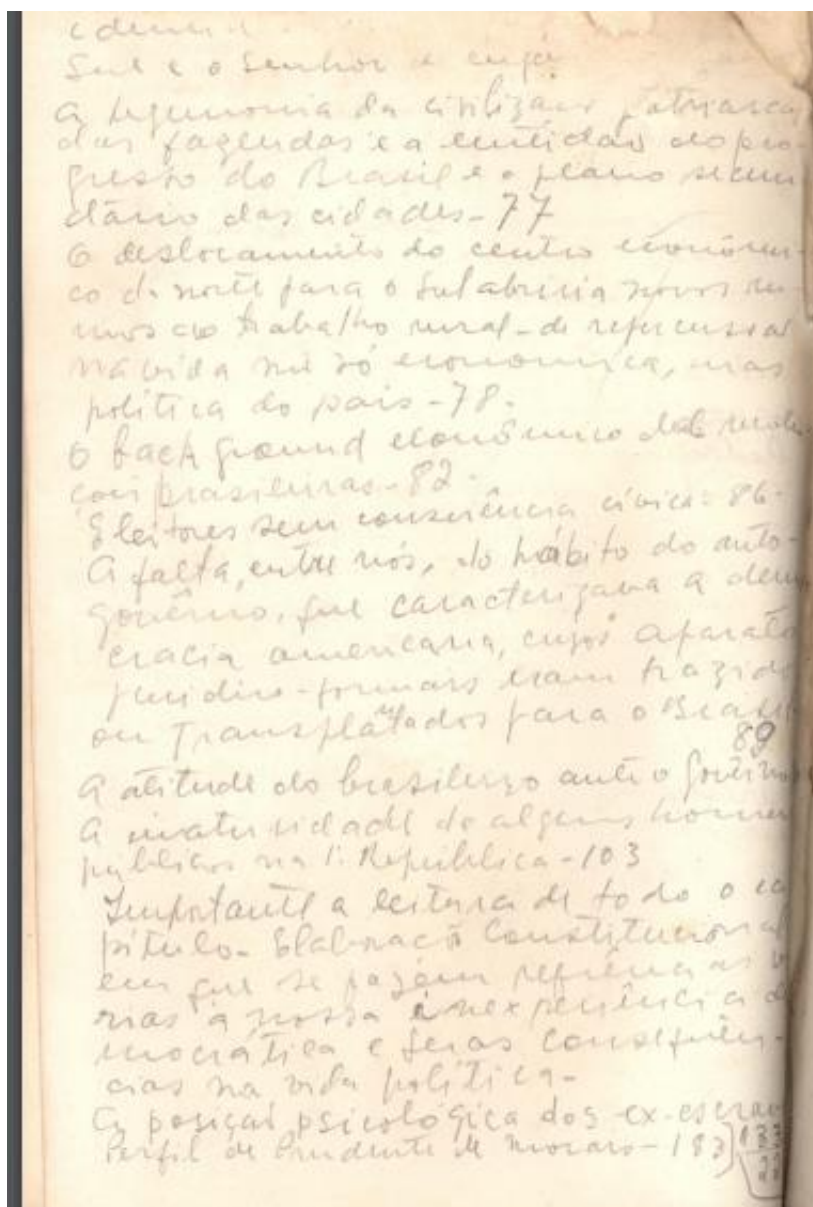 Sul e o Senhor
A hegemonia da civilização patriarcal
das fazendas e a lentidão do pro-
gresso do Brasil e o plano secun
dário das cidades - 77
O deslocamento do centro econômi-
co do norte para o sul abriria novos ru-
mos ao trabalho rural - de repercussão
na vida não só econômica, mas
política do país - 78.
O back ground econômico das revolu
ções brasileiras - 82.
Eleitores sem consciência cívica - 86.
A falta, entre nós, do hábito do auto-
govêrno, que caracterizava a demo
cracia americana, cujos aparatos
jurídico-formais eram trazidos
ou transplantados para o Brasil
89
A atitude do brasileiro ante o govêrno
A imaturidade de alguns homens
públicos na 1ª República - 103
Importante a leitura de todo o ca
pítulo - Elaboração Constitucional
em que se fazem referências vá
rias à nossa inexperiência de
mocrática e seras consequên-
cias na vida política -
A posição psicológica dos ex-escravos
Perfil de Prudente de Moraes - 183